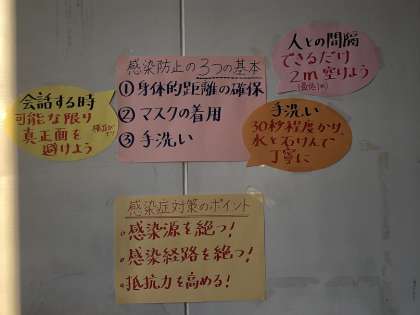 感染防止の3つの基本
①身体的距離の確保
②マスクの着用
③手洗い
人との間隔
できるだけ
2m空けよう
(最低1m)
会話する時
可能な限り
真正面を
避けよう
手洗い
30秒程度かけ
水と石けんで
丁寧に
感染症対策のポイント
•感染源を絶つ!
•感染経路を絶つ!
•抵抗力を高める!